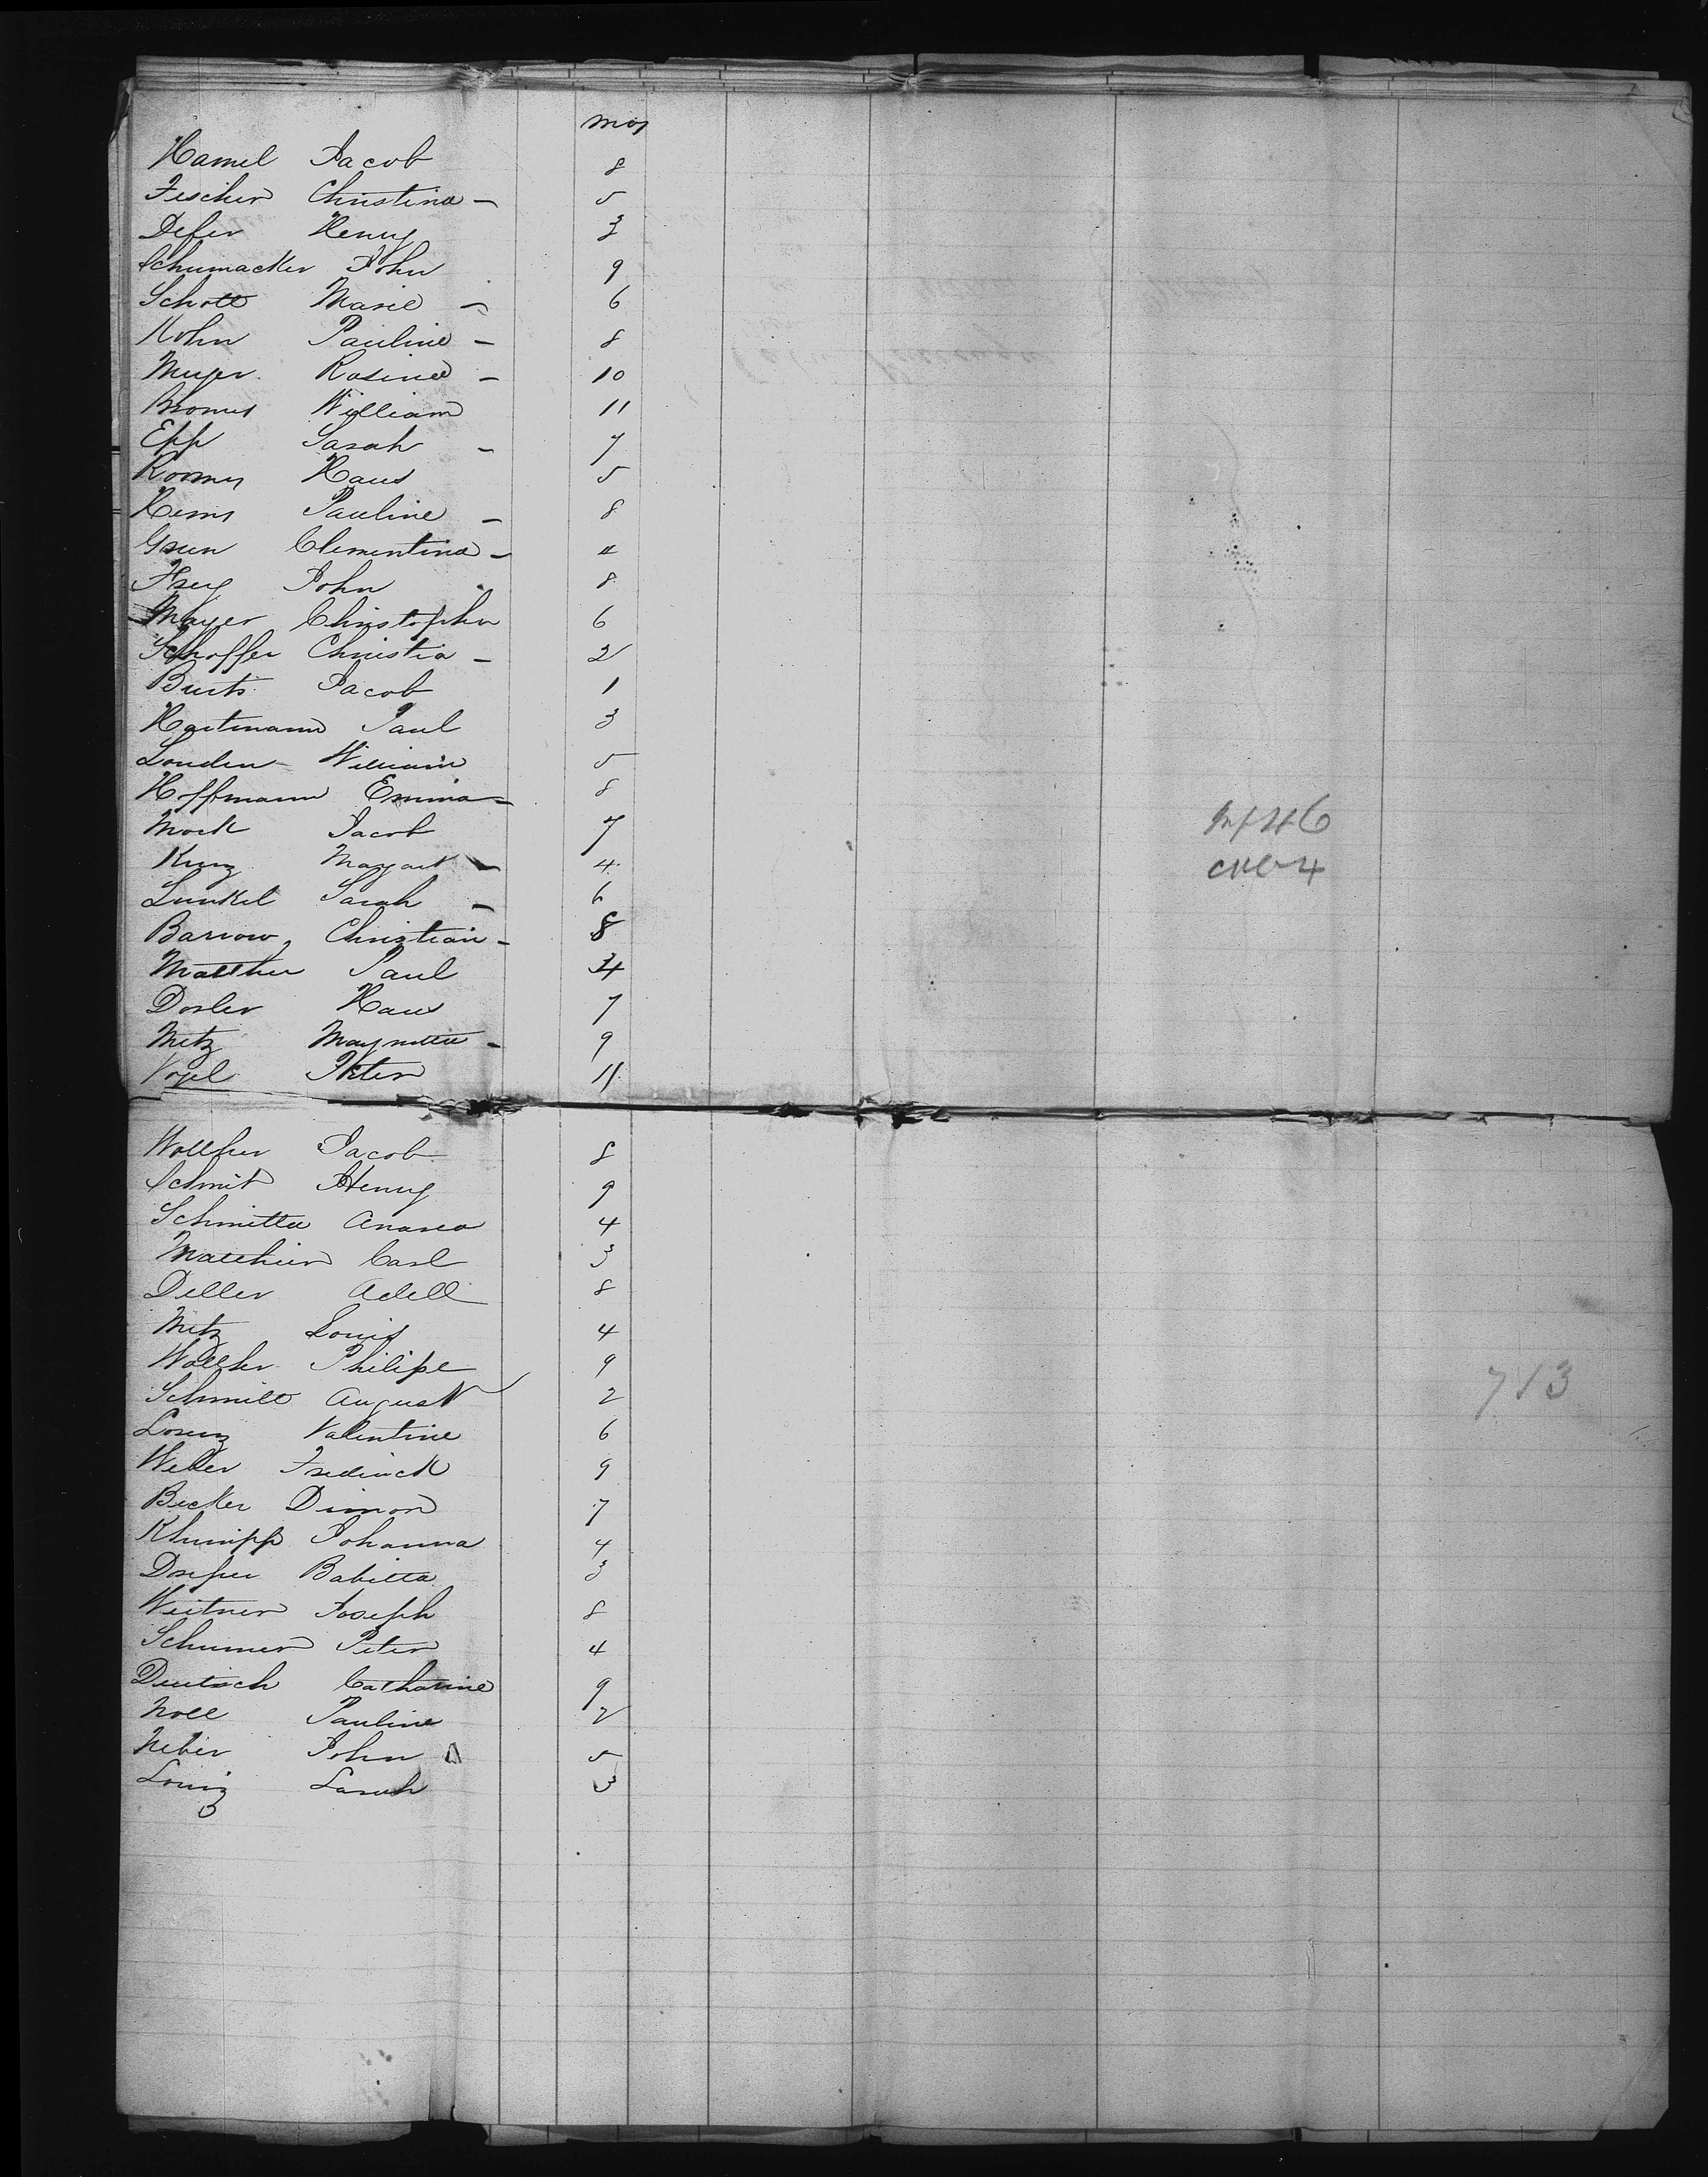 mos
Hamel Jacob 8
Fescher Christina - 5
Defer Henry 3
Schumacker John 9
Schott Marie - 6
Kohn Pauline - 8
Meyer Rosine - 10
William 11
Epp Sarah - 7
Haus 5
Pauline - 8
Grun Clementina - 4
Frey John 8
Mayer Christopher 6
Schoffer Christia - 2
Burts Jacob 1
Hartmann Paul 3
Louden William 5
Hoffmann Emma - 8
Mock Jacob 7
Kunz Magart - 4
Lunkel Sarah - 6
Barrow, Christian - 8
Matther Paul 4
Dosler Haus 7
Metz - 9
Vogel Peter 11
Jacob 8
Schmit Henry 9
Schmitta 4
Matthien Carl 3
Deller Adell 8
Metz Louis 4
Philipe 9
Schmitt August 2
Lorenz Valentine 6
Weber Fredrick 9
Becker Dimon 7
Khumpp Johanna 4
Babitta 3
Weitner Joseph 8
Schumer Peter 4
Deutsch Catharine 9
Noll Pauline 2
Neber John 5
Louiz Sarah 3
713